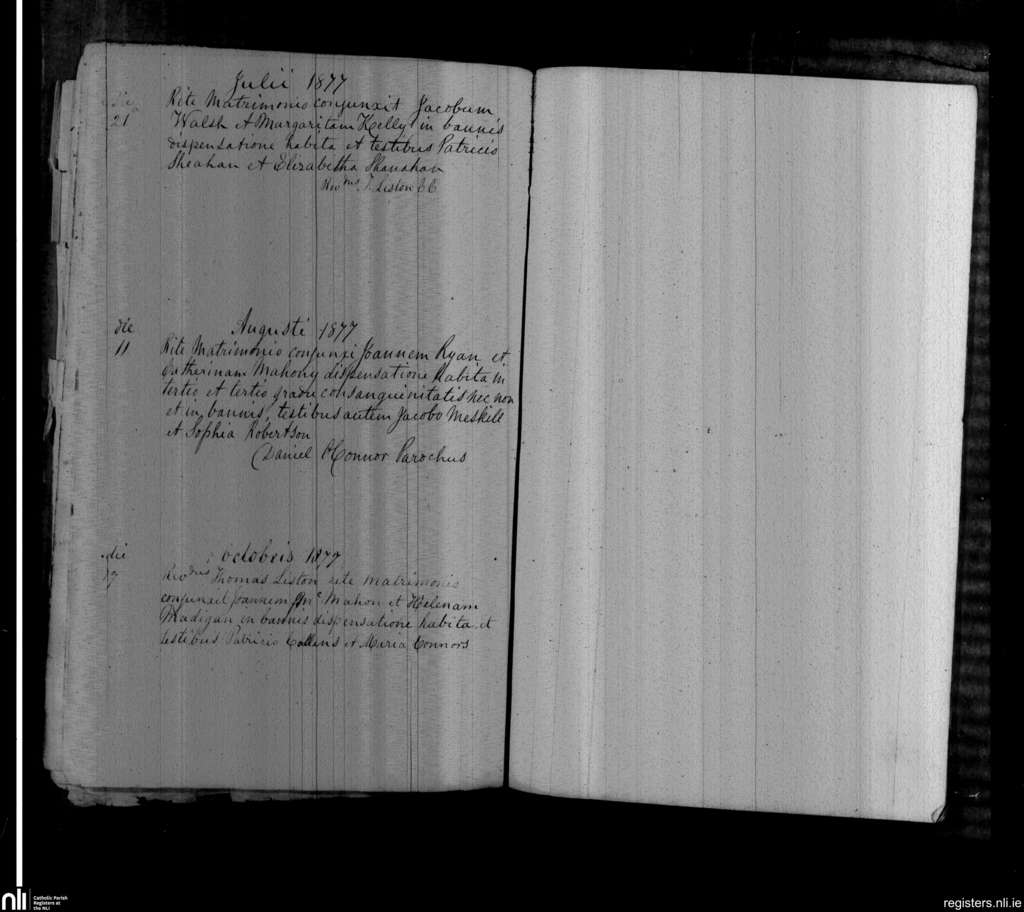 Julii 1877
die
21 Rite Matrimonio conjunxit Jacobum
Walsh et Margaritam Kelly in bannis
dispensatione habita et testibus Patricio
Sheahan et Elizabetha Shanahan
Revdus T. Liston CC
die
Augusti 1877
11 Rite Matrimonio conjunxi Joannem Ryan et
Catherinam Mahony dispensatione habita in
tertio et tertio gradu consanguinitatis nec non
et in bannis, testibus autem Jacobo Meskill
et Sophia Robertson
Daniel O'Connor Parochus
die
Octobris 1877
Revdus Thomas Liston rite matrimonio
conjunxit Joannem Mc Mahon et Helenam
Madigan in bannis dispensatione habita et
testibus Patricio Collins et Maria Connors
nli
Catholic Parish
Registers at
the NLI
registers.nli.ie